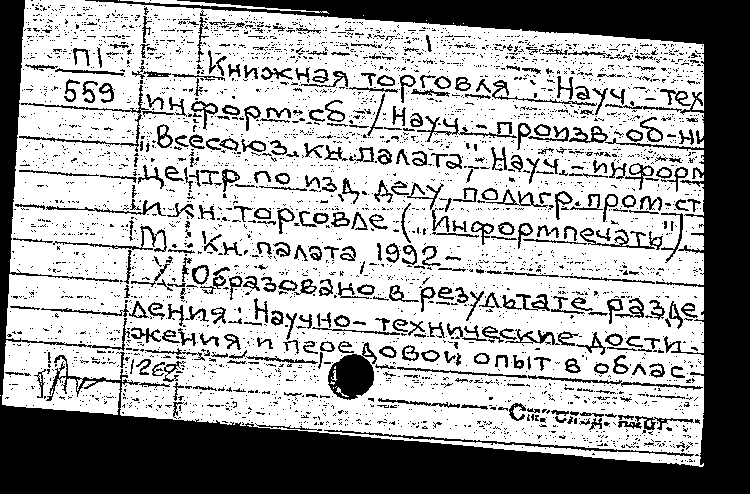 1
П1
559
Книжная торговля : Науч.-тех
информ. сб. / Науч.-произв. об-ни
„Всесоюз. кн. палата", Науч.-информ
центр по изд. делу, полигр. пром-ст
и кн. торговле („Информпечать"). -
М. : Кн. палата, 1992 -
X. Образовано в результате разде-
ления : Научно-технические дости-
жения и передовой опыт в облас-
1262
См. след. карт.